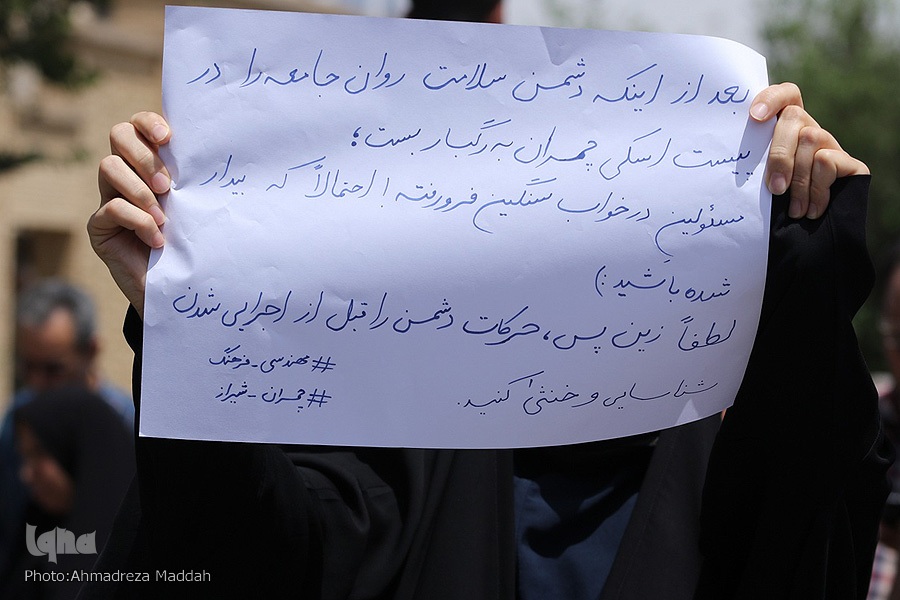 بعد از اینکه دشمن سلامت روان جامعه را در
پیست اسکی چمران به رگبار بست؛
مسئولین در خواب سنگین فرورفته! احتمالاً که بیدار
شده باشید :)
لطفاً زین پس، حرکات دشمن را قبل از اجرایی شدن
شناسایی و خنثی کنید.
#مهندسی-فرهنگ
#چمران-شیراز
Iqna
Photo:Ahmadreza Maddah